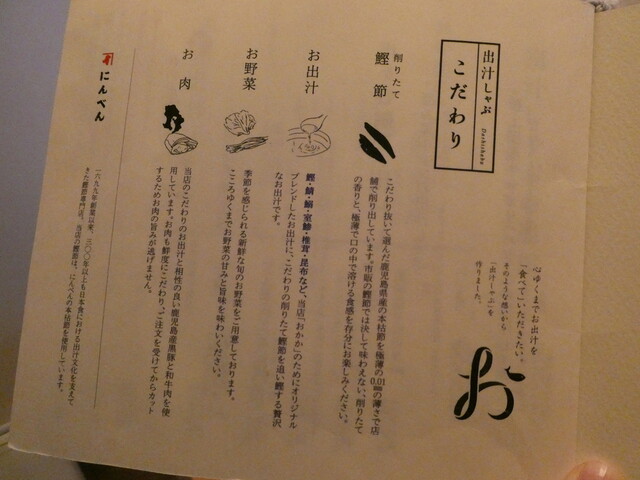 出汁しゃぶ
Dashishabu
こだわり
心ゆくまでお出汁を
「食べて」いただきたい。
そのような想いから
「出汁しゃぶ」を
作りました。
お
削りたて
鰹節
こだわり抜いて選んだ鹿児島県産の本枯節を極薄の0.01㎜の薄さで店
舗で削り出しています。市販の鰹節では決して味わえない、削りたて
の香りと、極薄で口の中で溶ける食感を存分にお楽しみください。
お出汁
鰹・鯖・鰯・室鯵・椎茸・昆布など、当店「おかか」のためにオリジナル
ブレンドしたお出汁に、こだわりの削りたて鰹節を追い鰹する贅沢
なお出汁です。
お野菜
季節を感じられる新鮮な旬のお野菜をご用意しております。
こころゆくまでお野菜の甘みと旨味を味わいください。
お肉
当店のこだわりのお出汁と相性の良い鹿児島産黒豚と和牛肉を使
用しています。お肉も鮮度にこだわり、ご注文を受けてからカット
するためお肉の旨みが逃げません。
にんべん
一六九九年創業以来、三〇〇年以上も日本食における出汁文化を支えて
きた鰹節専門店。当店の鰹節は、にんべんの本枯節を使用しています。